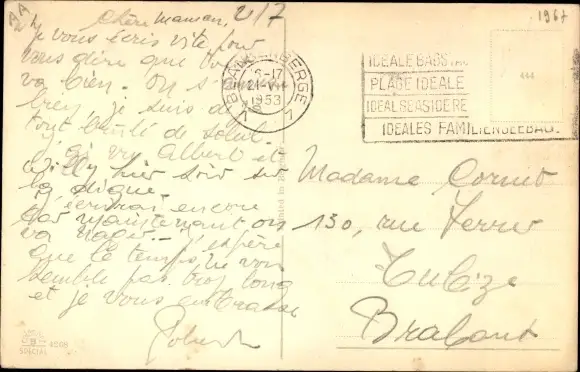 Chère Maman, 21/7
je vous écris vite pour
vous dire que tout
va bien. On s'
je suis de
tout brûlé de soleil.
J'ai vu Albert et
Willy hier soir sur
la digue.
J'écrirai encore
car maintenant on
va nager. J'espère
que le temps ne vous
semble pas trop long
et je vous embrasse
Robert
1967
BLANKENBERGE
16-17
21 VII
1953
IDEALE BADSTAD
PLAGE IDEALE
IDEAL SEASIDE RE
IDEALES FAMILIENSEEBAD.
Madame Cornet
130, rue Ferrer
Tubize
Brabant
SPECIAL